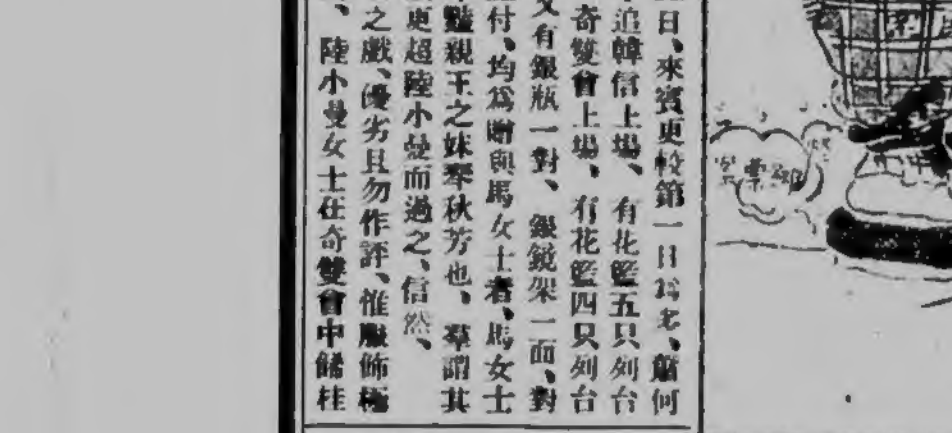 日、來賓更較第一日爲多、蕭何
追韓信上場、有花籃五只列台
奇雙會上場、有花籃四只列台
又有銀瓶一對、銀鏡架一面、對
付、均爲贈與馬女士者、馬女士
豔親王之妹琴秋芳也、羣謂其
更超陸小曼而過之、信然、
之戲、優劣且勿作評、惟服飾極
、陸小曼女士在奇雙會中飾桂